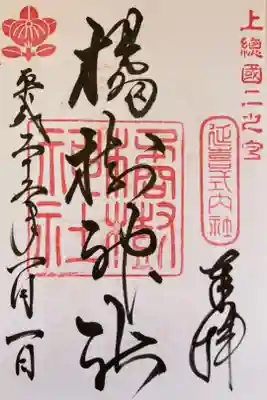 上總國二之宮
延喜式内社
奉拝
橘樹神社
橘樹神社
平成二十六年一月一日